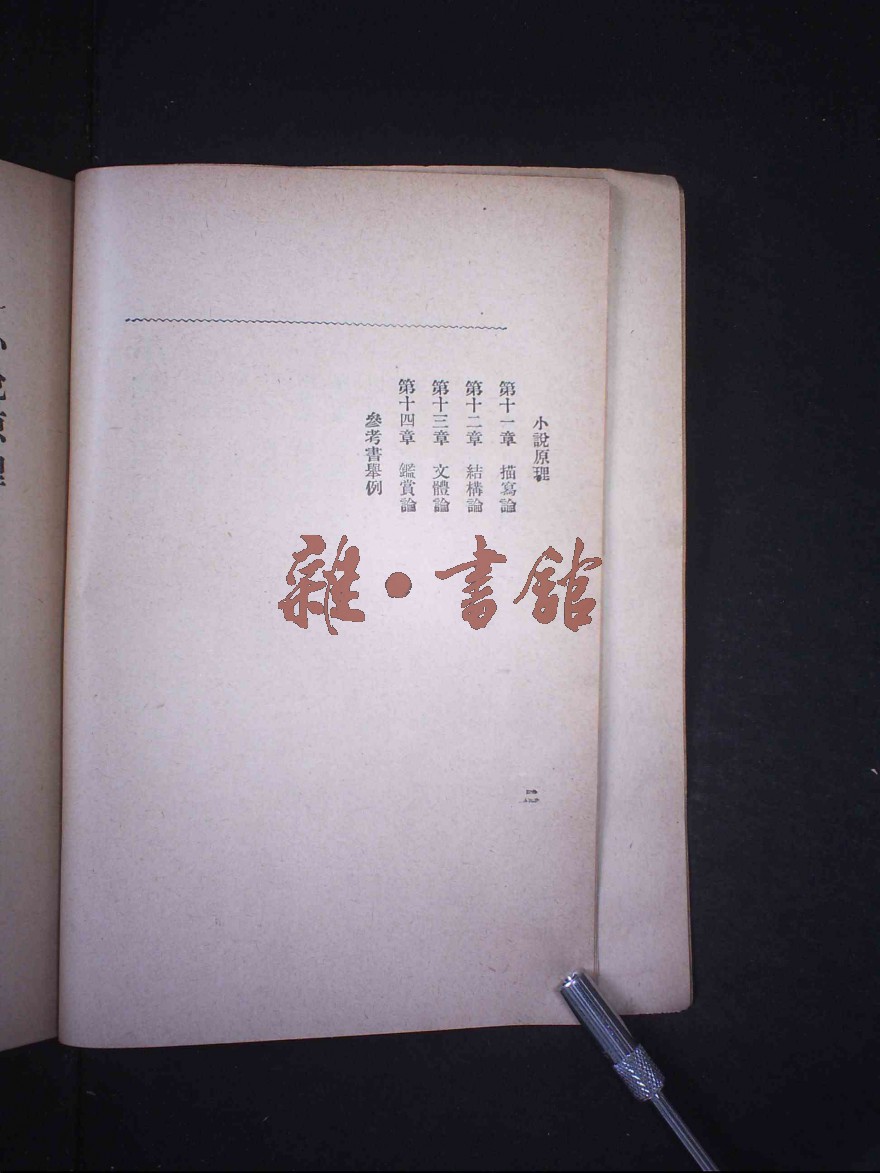 小說原理
第十一章 描寫論
第十二章 結構論
第十三章 文體論
第十四章 鑑賞論
參考書舉例
雜·書館